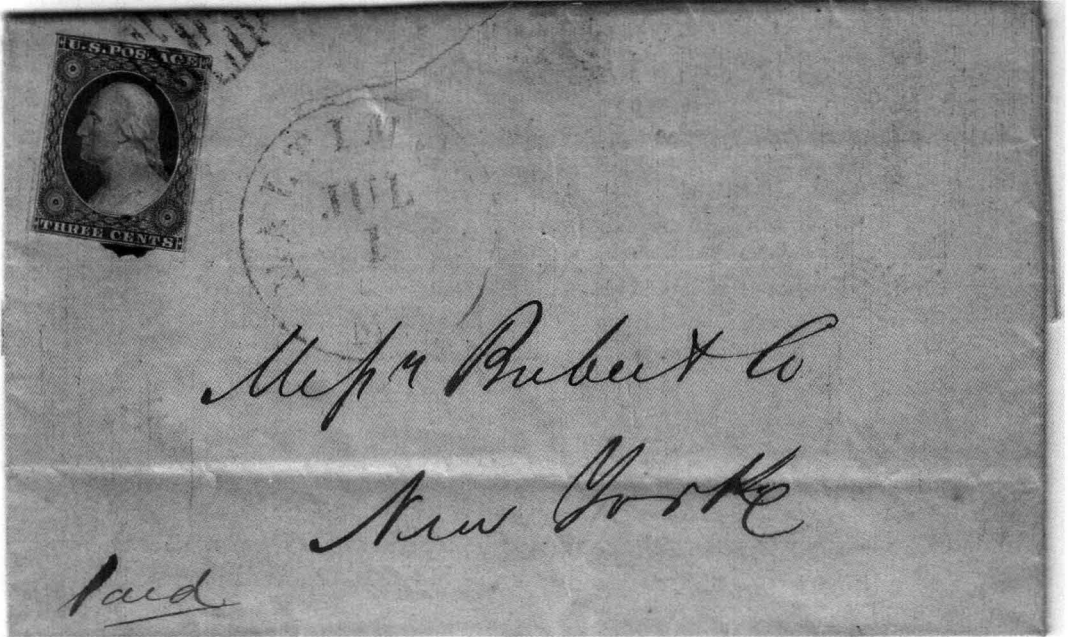 U.S. POSTAGE
THREE CENTS
BALTIM
JUL
1
Messrs & Co
New York
Paid